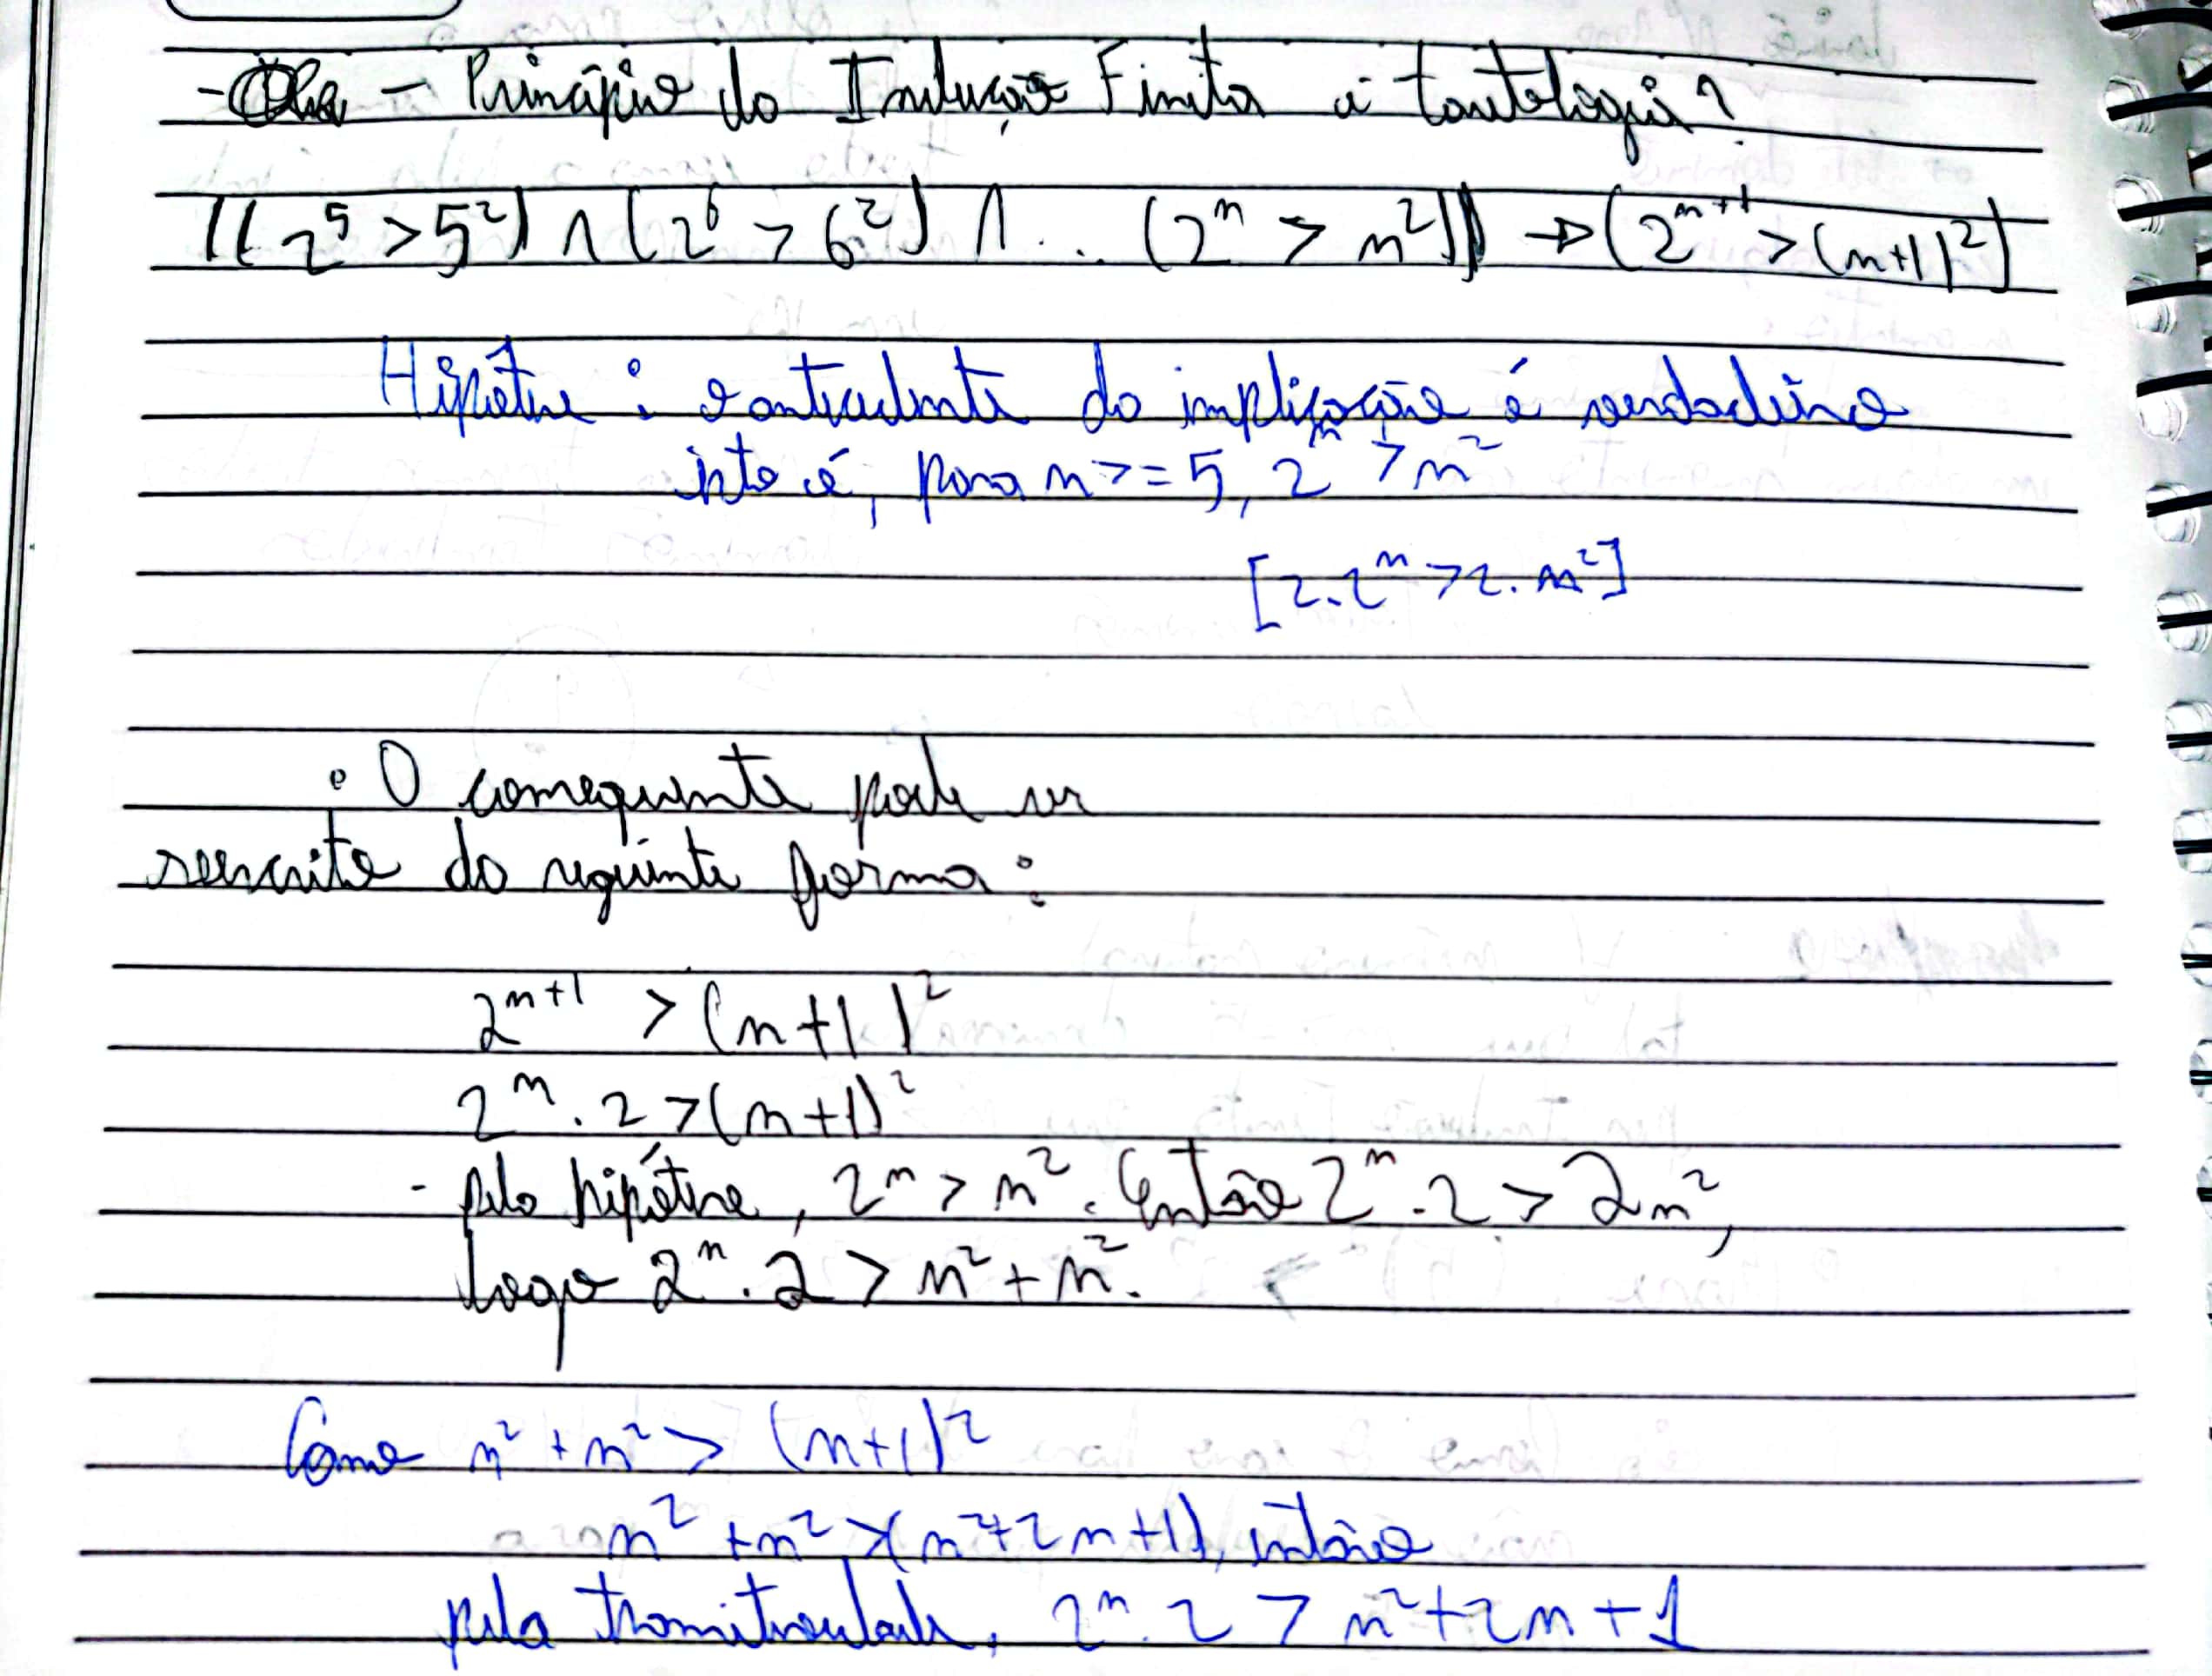 - Princípio da Indução Finita é tautologia?
((2⁵ > 5²) ∧ (2⁶ > 6²) ∧ ... (2ⁿ > n²)) → (2ⁿ⁺¹ > (n+1)²)
Hipótese : o antecedente da implicação é verdadeiro
isto é, para n >= 5, 2ⁿ > n²
[2.2ⁿ > 2.n²]
• O consequente pode ser
reescrito da seguinte forma :
2ⁿ⁺¹ > (n+1)²
2ⁿ . 2 > (n+1)²
- pela hipótese, 2ⁿ > n². Então 2ⁿ . 2 > 2n²,
logo 2ⁿ . 2 > n² + n².
Como n² + n² > (n+1)²
n² + n² > (n² + 2n + 1), então
pela transitividade, 2ⁿ . 2 > n² + 2n + 1